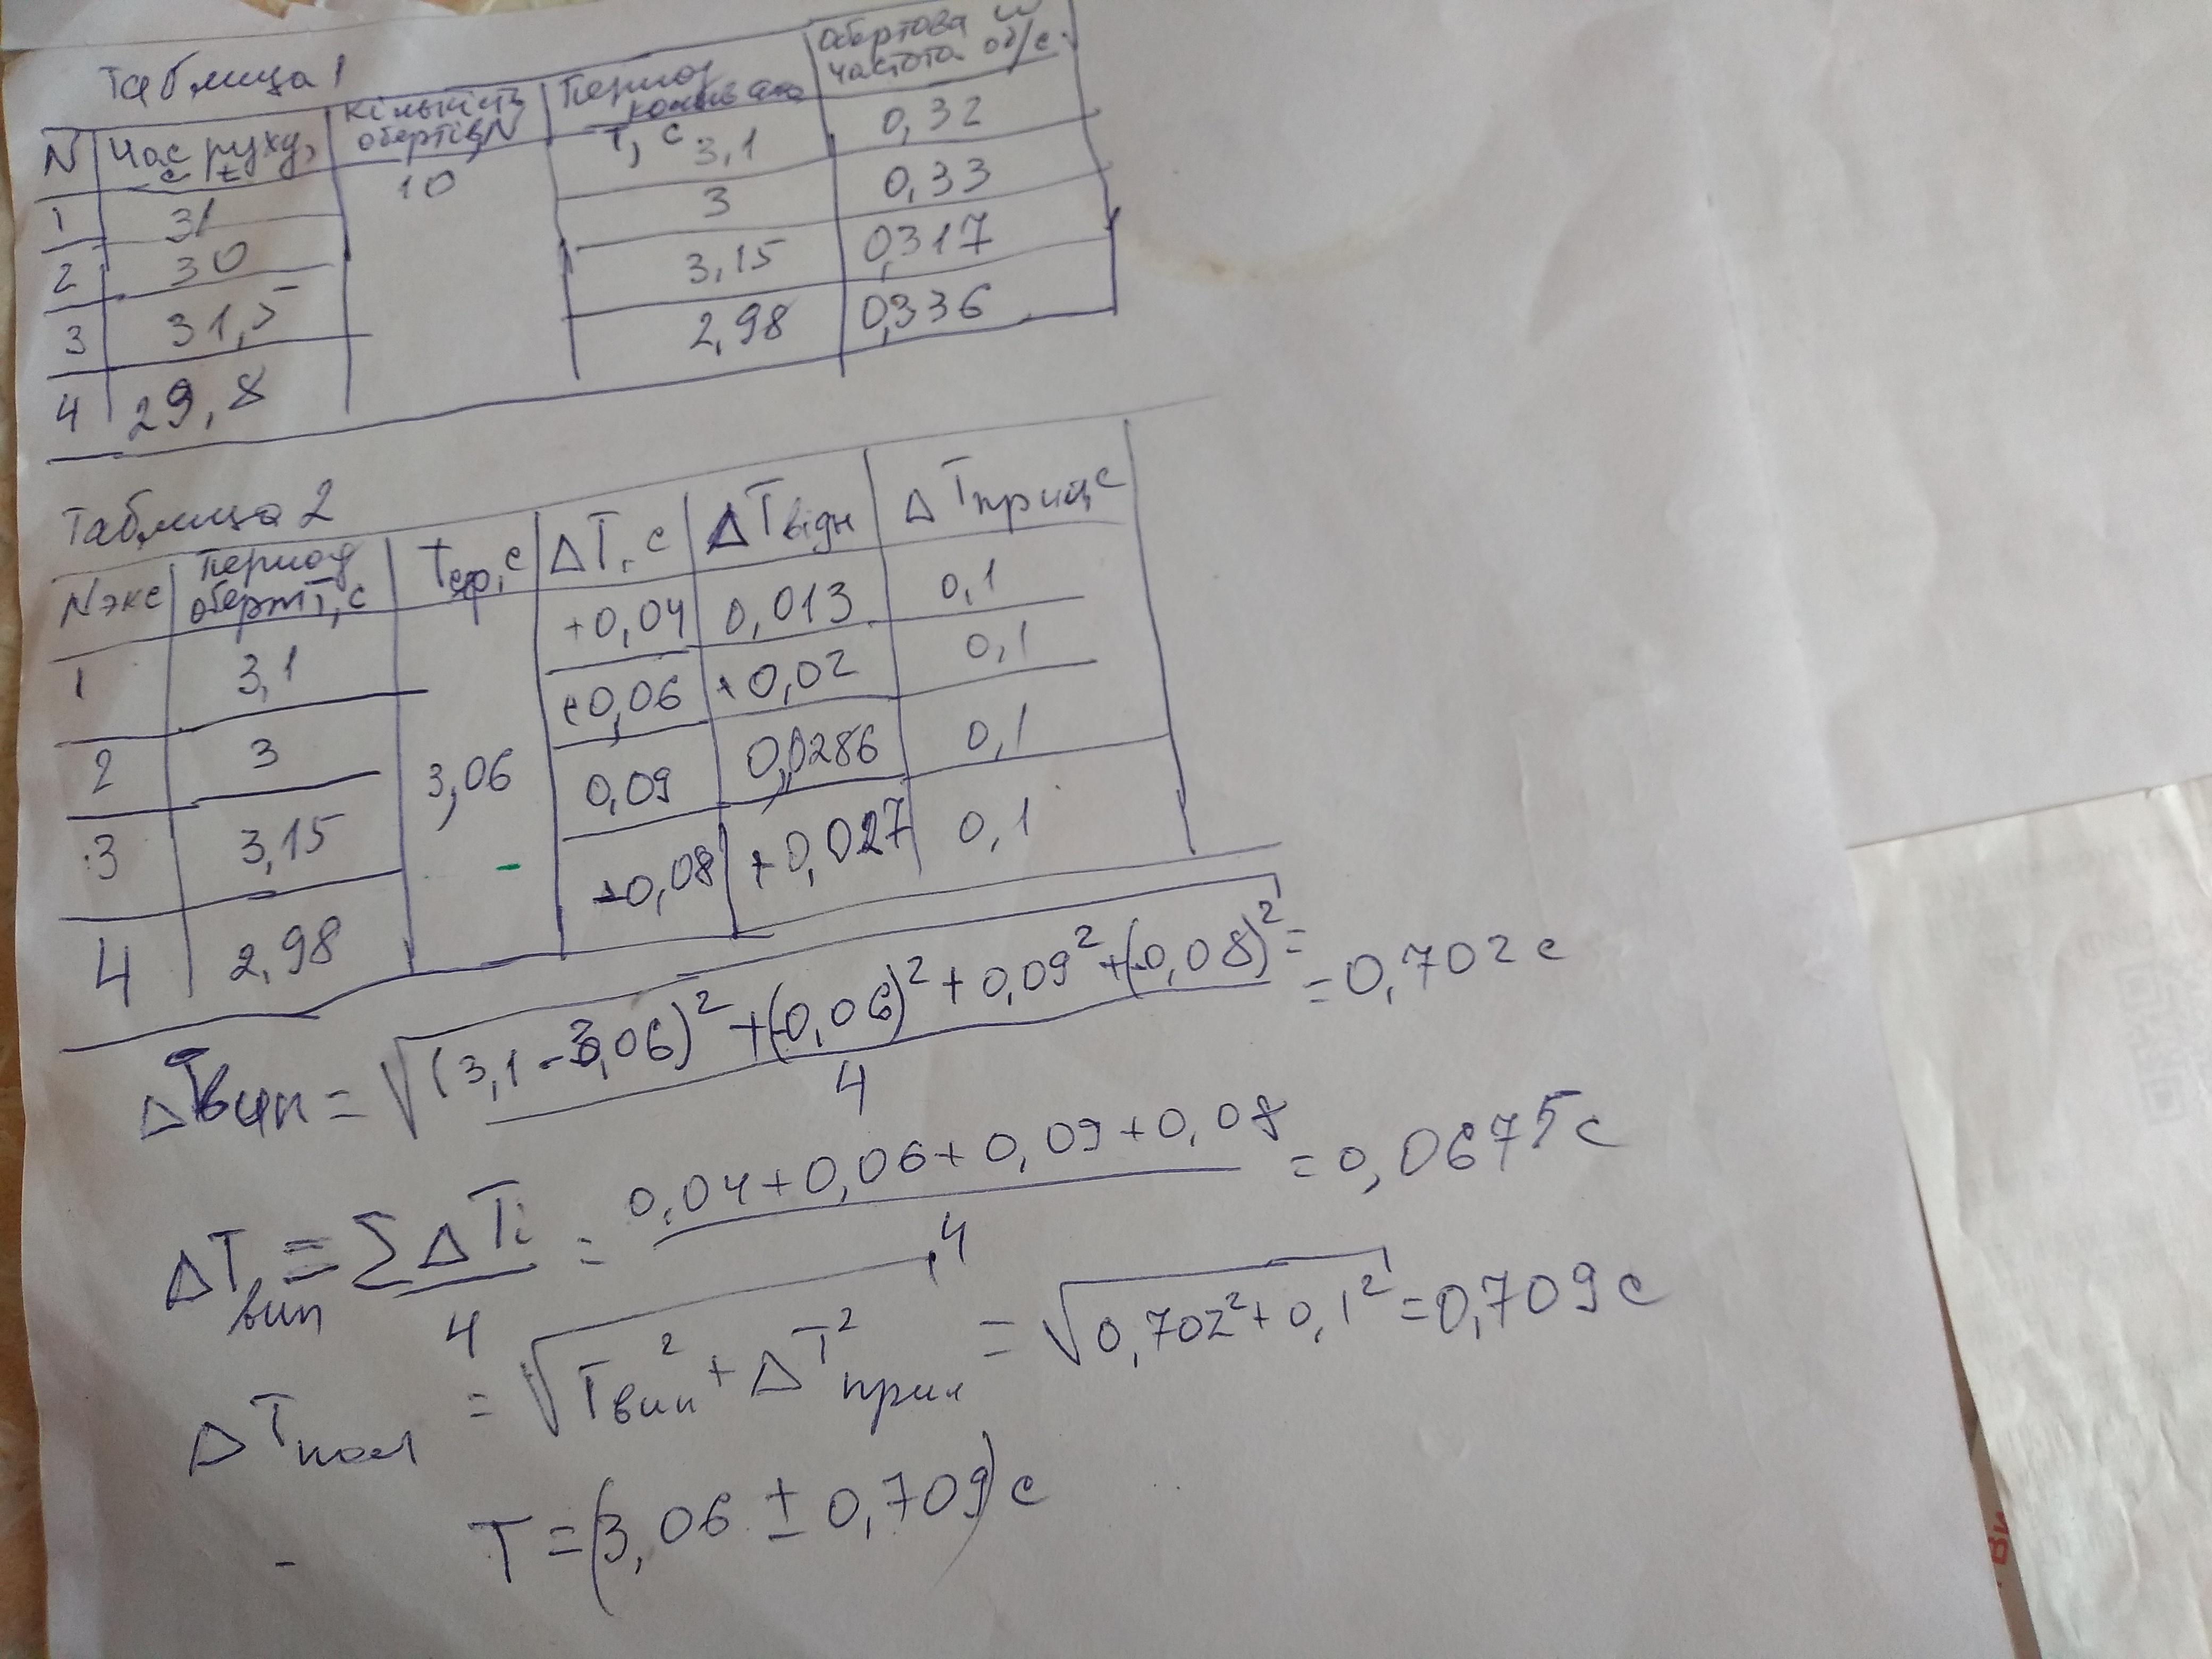 Таблица 1
N | Час руху, с t | Кількість обертів N | Период коливана T, с | Обертова частота об/с. ω
1 | 31 | 10 | 3,1 | 0,32
2 | 30 | 3 | 0,33
3 | 31,5 | 3,15 | 0,317
4 | 29,8 | 2,98 | 0,336
Таблица 2
N экс | Период оберт T, с | Tср, с | ΔT, с | ΔTвідн | ΔTприц, с
1 | 3,1 | 3,06 | +0,04 | 0,013 | 0,1
2 | 3 | 0,06 | +0,02 | 0,1
3 | 3,15 | 0,09 | 0,0286 | 0,1
4 | 2,98 | 0,08 | +0,027 | 0,1
ΔTвип = √((3,1-3,06)² + (-0,06)² + 0,09² + (-0,08)²)/4 = = 0,702 с
ΔTвип = ΣΔTi/4 = (0,04+0,06+0,09+0,08)/4 = 0,0675 с
ΔTпол = √(Tвип² + ΔT²прил) = √(0,702² + 0,1²) = 0,709 с
T = (3,06 ± 0,709) с